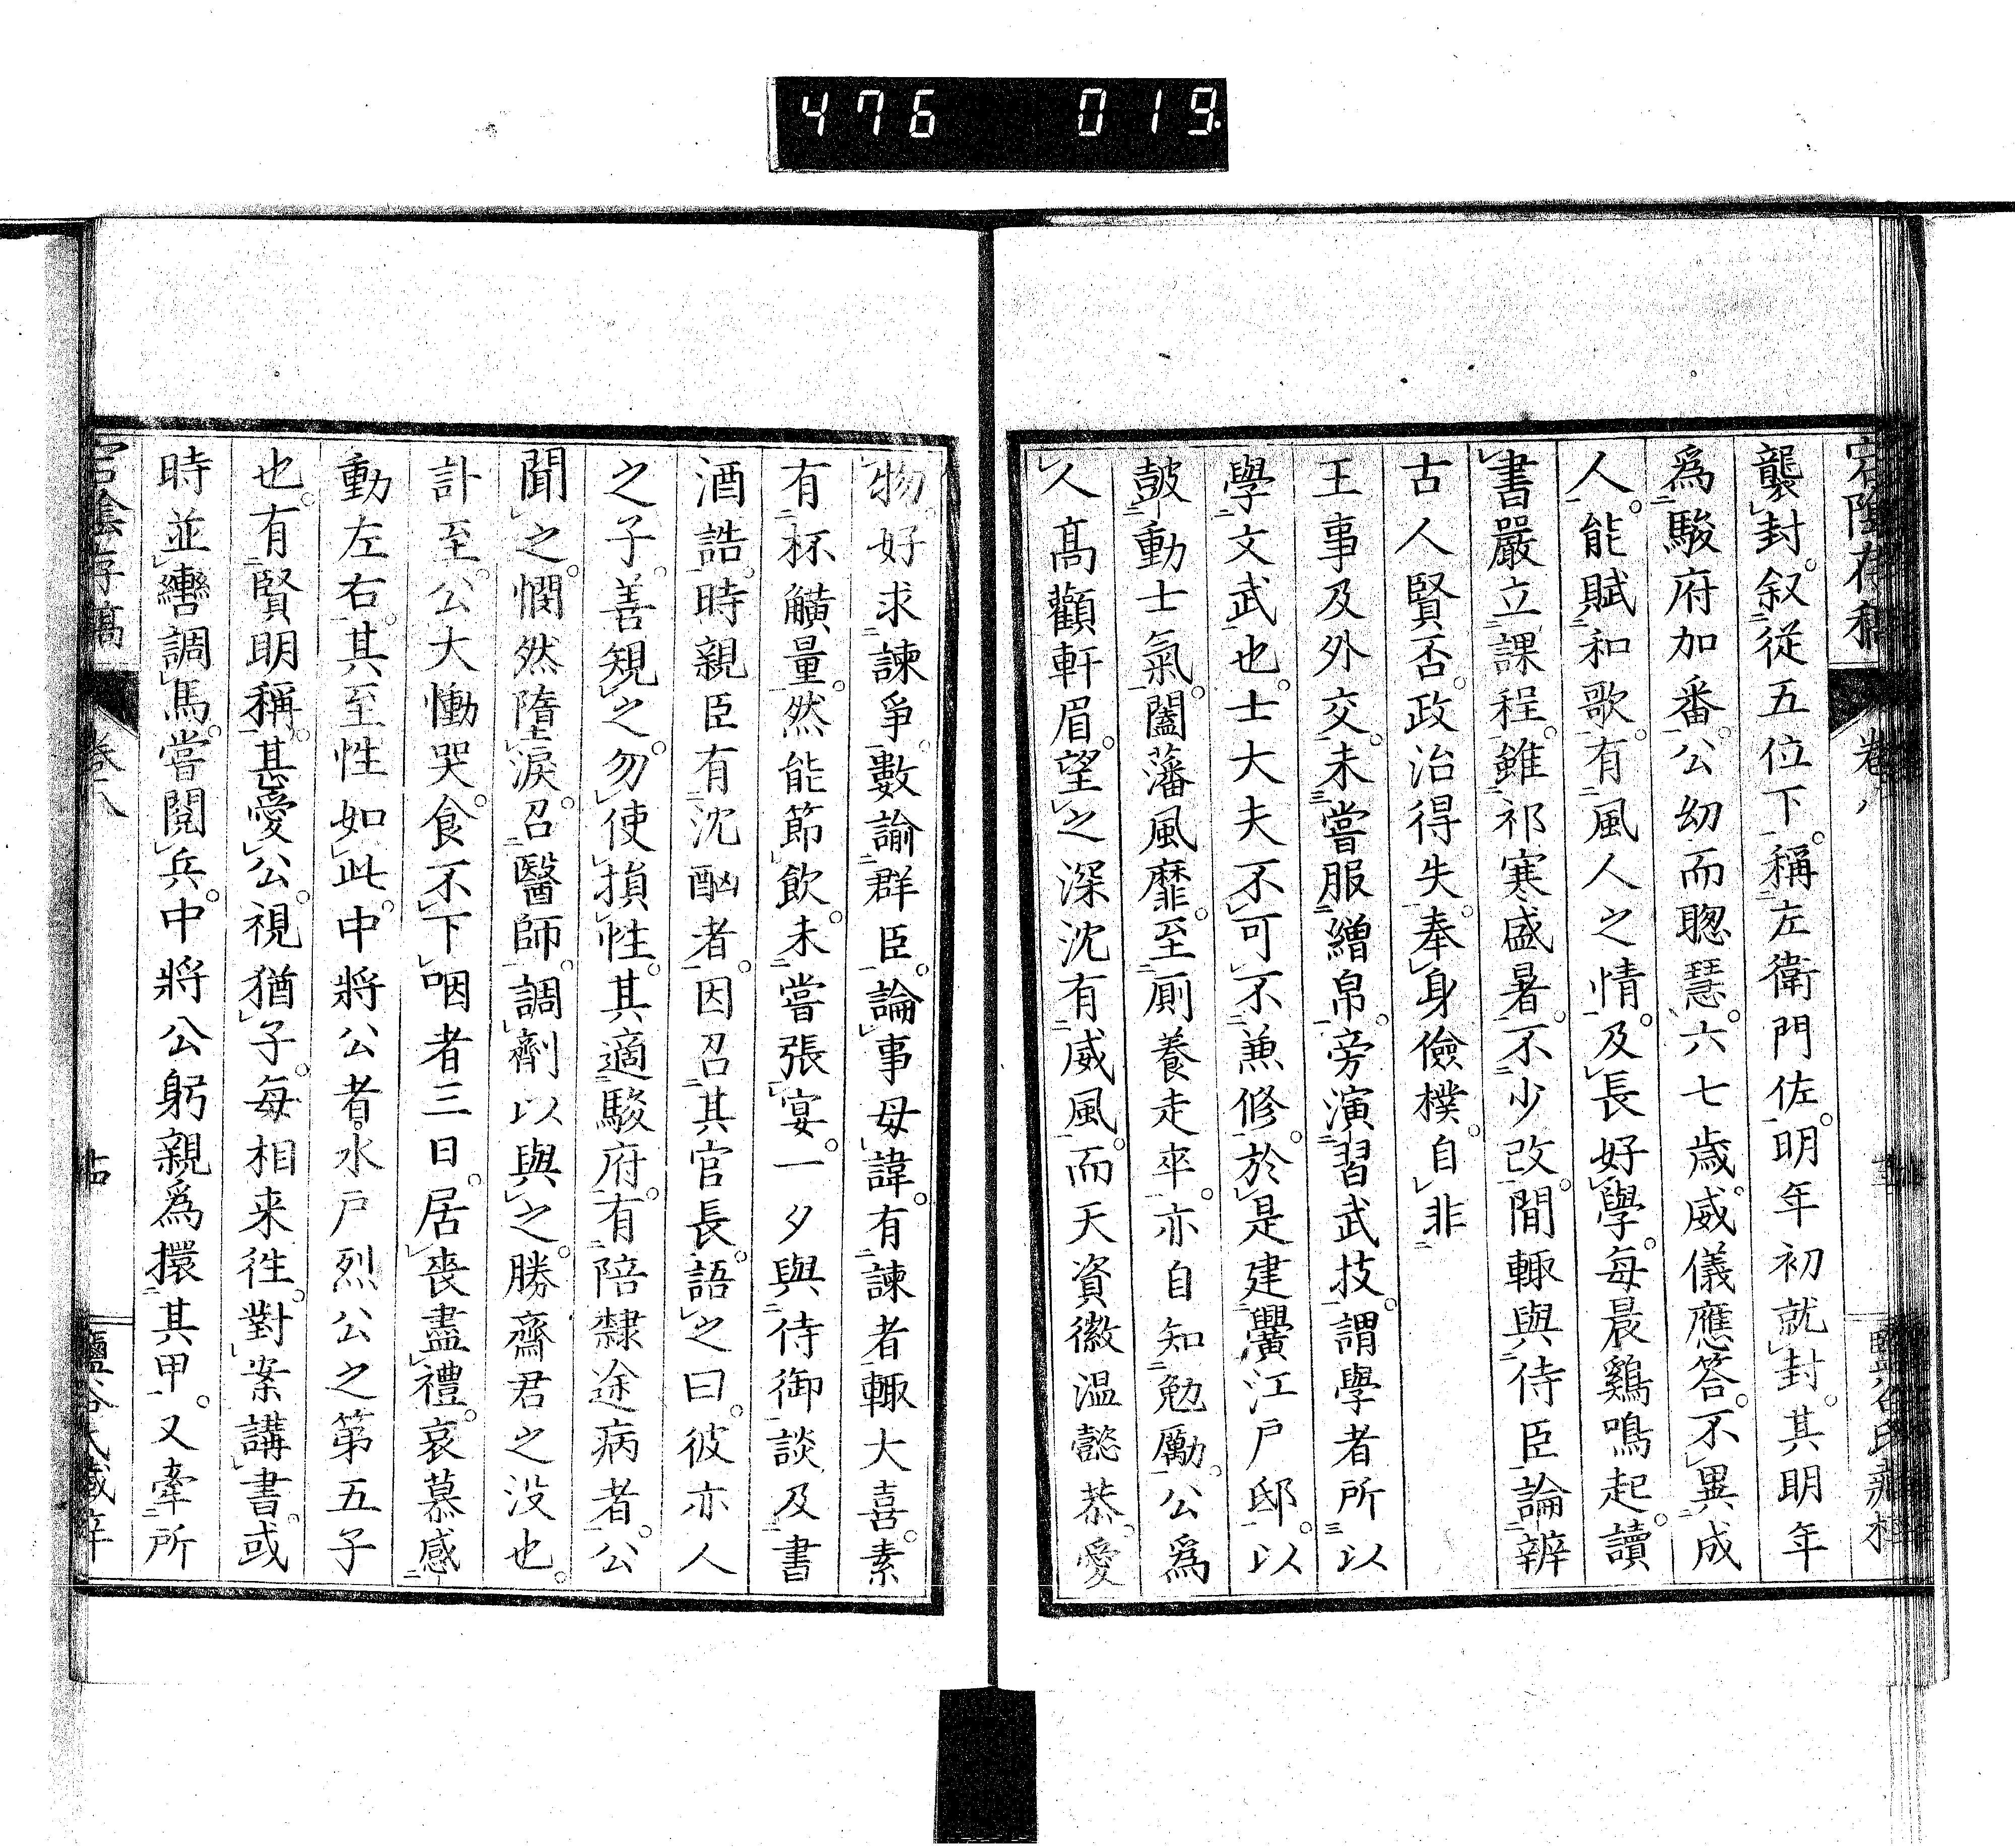 476 019
宕陰存稿 卷八
襲封。叙從五位下。稱左衛門佐。明年初就封。其明年
爲駿府加番。公幼而聰慧。六七歳。威儀應答。不異成
人。能賦和歌。有風人之情。及長好學。每晨鷄鳴起。讀
書嚴立課程。雖祁寒盛暑。不少改。間輙與侍臣論辨
古人賢否。政治得失。奉身儉樸。自非
王事及外交。未嘗服繒帛。旁演習武技。謂學者所以
學文武也。士大夫不可不兼修。於是建黌江戸邸。以
皷動士氣。闔藩風靡。至厠養走卒。亦自知勉勵。公爲
人高顴軒眉。望之深沈有威風。而天資徽溫懿恭。愛
物。好求諫爭。數諭群臣。論事毋諱。有諫者輙大喜。素
有杯觵量。然能節飲。未嘗張宴。一夕與侍御談及書
酒誥。時親臣有沈酗者。因召其官長。語之曰。彼亦人
之子。善覌之。勿使損性。其適駿府。有陪隸途病者。公
聞之。憫然墮淚。召醫師。調劑以與之。勝齋君之没也。
訃至。公大慟哭。食不下咽者三日。居喪盡禮。哀慕感
動左右。其至性如此。中將公者。水戸烈公之第五子
也。有賢明稱。甚愛公。視猶子。每相来往。對案講書。或
時並轡調馬。嘗閲兵。中將公躬親爲擐其甲。又牽所
宕陰存稿 卷八